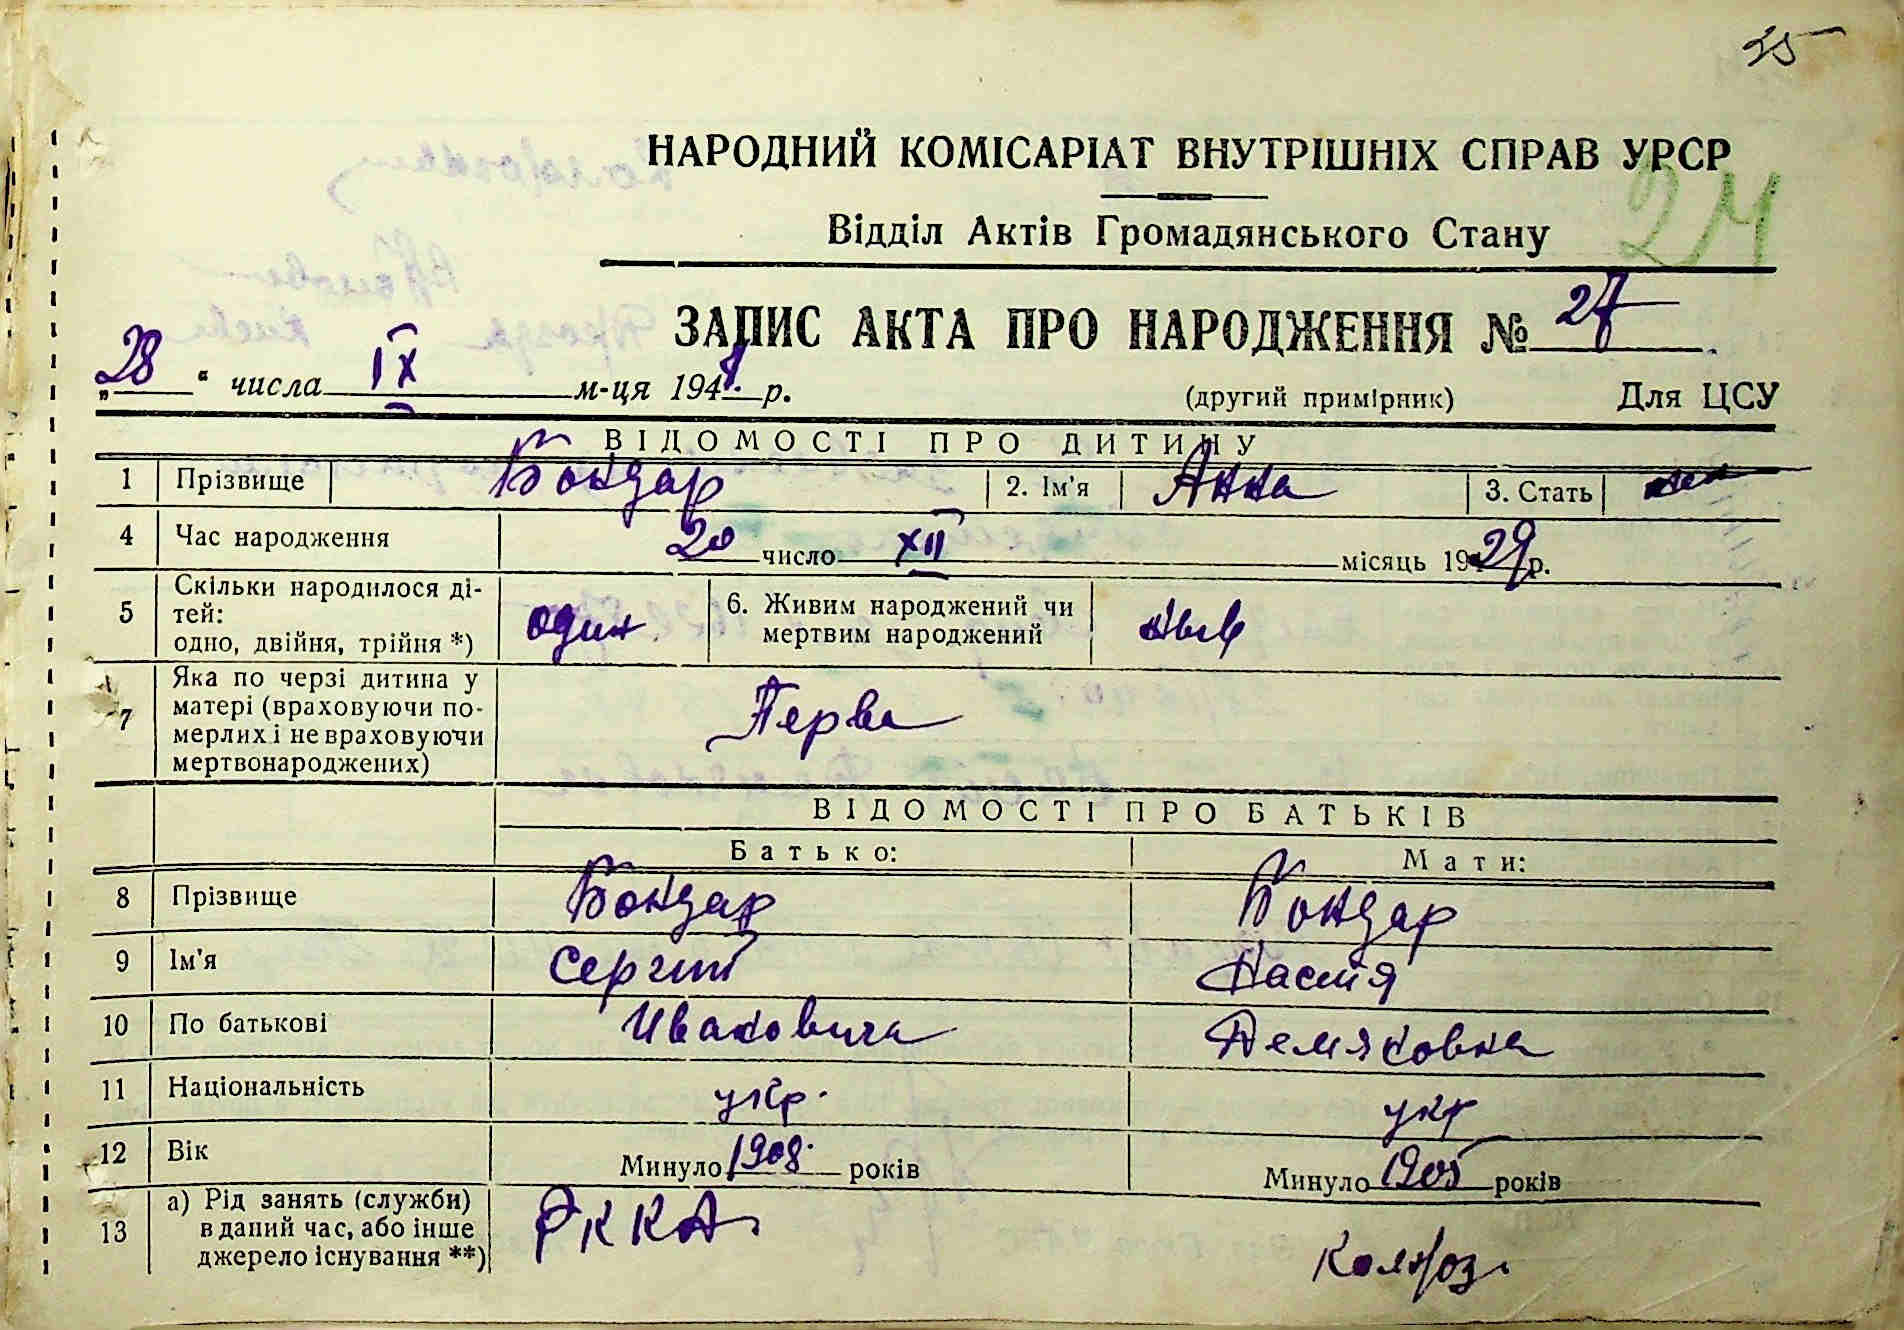 35
НАРОДНИЙ КОМІСАРІАТ ВНУТРІШНІХ СПРАВ УРСР
Відділ Актів Громадянського Стану
ЗАПИС АКТА ПРО НАРОДЖЕННЯ № 27
„28“ числа IX м-ця 194 р.
(другий примірник) Для ЦСУ
ВІДОМОСТІ ПРО ДИТИНУ
1 Прізвище Бондар 2. Ім'я Анна 3. Стать жен
4 Час народження 20 число XII місяць 1929 р.
5 Скільки народилося ді-
тей:
одно, двійня, трійня *) один 6. Живим народжений чи
мертвим народжений жив
7 Яка по черзі дитина у
матері (враховуючи по-
мерлих і не враховуючи
мертвонароджених) Перва
ВІДОМОСТІ ПРО БАТЬКІВ
Батько: Мати:
8 Прізвище Бондар Бондар
9 Ім'я Сергий Настя
10 По батькові Иванович Демяновна
11 Національність укр. укр
12 Вік Минуло 1908 років Минуло 1905 років
13 а) Рід занять (служби)
в даний час, або інше
джерело існування **) РККА Колхоз